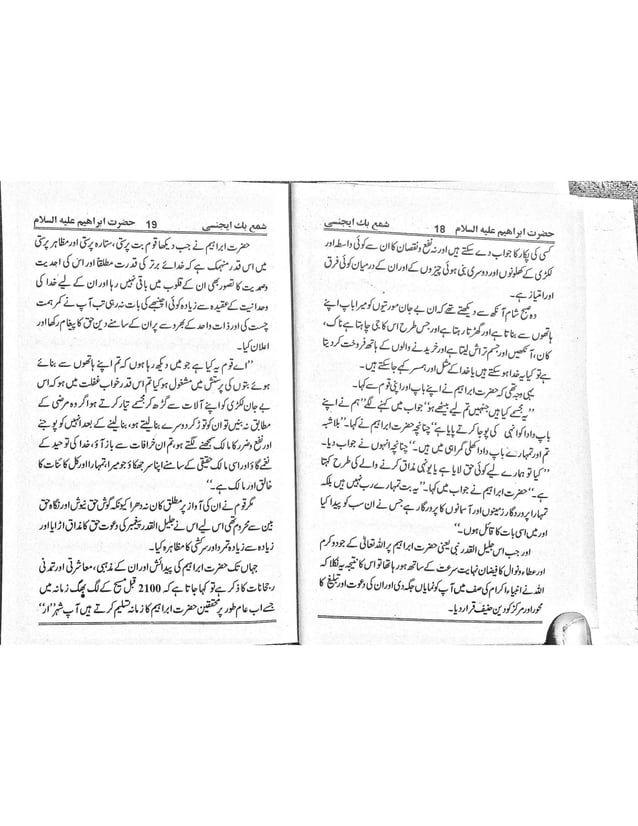 حضرت ابراهيم عليه السلام 18 شمع بک ايجنسی
کسی کی پکار کا جواب دے سکتے ہیں اور نہ نفع و نقصان کا ان سے کوئی واسطہ اور
لکڑی کے کھلونوں اور دوسری بنی ہوئی چیزوں کے اور ان کے درمیان کوئی فرق
اور امتیاز ہے۔
وہ صبح شام آنکھ سے دیکھتے تھے کہ ان بے جان مورتیوں کو میرا باپ اپنے
ہاتھوں سے بناتا ہے اور گھڑتا رہتا ہے اور جس طرح اس کا جی چاہتا ہے ناک،
کان، آنکھیں اور جسم تراش لیتا ہے اور خریدنے والوں کے ہاتھ فروخت کر دیتا
ہے تو کیا یہ خدا ہو سکتے ہیں یا خدا کے مثل اور ہمسر کہے جا سکتے ہیں۔
یہی وجہ تھی کہ حضرت ابراہیم نے اپنے باپ اور اپنی قوم سے کہا۔
”یہ مجسمے کیا ہیں جنہیں تم لیے بیٹھے ہو“ جواب میں کہنے لگے ”ہم نے اپنے
باپ دادا کو انہی کی پوجا کرتے پایا ہے“ چنانچہ حضرت ابراہیم نے کہا۔ ”بلاشبہ
تم اور تمہارے باپ دادا کھلی گمراہی میں ہیں۔“ چنانچہ انہوں نے جواب دیا۔
”کیا تو ہمارے لیے کوئی حق لایا ہے یا یونہی مذاق کرنے والے کی طرح کہتا
ہے۔“ حضرت ابراہیم نے جواب میں کہا۔ ”یہ بت تمہارے رب نہیں ہیں بلکہ
تمہارا پروردگار زمینوں اور آسمانوں کا پرورگار ہے جس نے ان سب کو پیدا کیا
اور میں اسی بات کا قائل ہوں۔“
اور جب اس جلیل القدر نبی یعنی حضرت ابراہیم پر اللہ تعالٰی کے جود و کرم
اور عطاء و نوال کا فیضان نہایت سرعت کے ساتھ ہو رہا تھا تو اس کا نتیجہ یہ نکلا کہ
اللہ نے انبیاء اکرام کی صف میں آپ کو نمایاں جگہ دی اور ان کی دعوت اور تبلیغ کا
محور اور مرکز کو دین حنیف قرار دیا۔
شمع بک ايجنسی 19 حضرت ابراهيم عليه السلام
حضرت ابراہیم نے جب دیکھا قوم بت پرستی، ستارہ پرستی اور مظاہر پرستی
میں اس قدر منہمک ہے کہ خدائے برتر کی قدرت مطلقا اور اس کی احدیت
وصمدیت کا تصور بھی ان کے قلوب میں باقی نہیں رہا اور ان کے لیے خدا کی
وحدانیت کے عقیدہ سے زیادہ کوئی اچنبھے کی بات نہ رہی تب آپ نے کمر ہمت
چست کی اور ذات واحد کے بھروسے پر ان کے سامنے دین حق کا پیغام رکھا اور
اعلان کیا۔
”اے قوم یہ کیا ہے جو میں دیکھ رہا ہوں کہ تم اپنے ہاتھوں سے بنائے
ہوئے بتوں کی پرستش میں مشغول ہو کیا تم اس قدر خواب غفلت میں ہو کہ جس
بے جان لکڑی کو اپنے آلات سے گھڑ کر مجسمے تیار کرتے ہو اگر وہ مرضی کے
مطابق نہ بنیں تو ان کو توڑ کر دوسرے بنا لیتے ہو، بنا لینے کے بعد انہیں کو پوجنے
اور نفع و ضرر کا مالک سمجھنے لگتے ہو، تم ان خرافات سے باز آؤ، خدا کی توحید کے
نغمے گاؤ اور اسی مالک حقیقی کے سامنے اپنا سر جھکاؤ جو میرا تمہارا اور کل کائنات کا
خالق اور مالک ہے۔“
مگر قوم نے ان کی آواز پر مطلق کان نہ دھرا کیونکہ گوش حق نیوش اور نگاہ حق
بین سے محروم تھی اس لیے اس نے جلیل القدر پیغمبر کی دعوت حق کا مذاق اڑایا اور
زیادہ سے زیادہ تمرد اور سرکشی کا مظاہرہ کیا۔
جہاں تک حضرت ابراہیم کی پیدائش اور ان کے مذہبی، معاشرتی اور تمدنی
رجحانات کا ذکر ہے تو کہا جاتا ہے کہ 2100 قبل مسیح کے لگ بھگ زمانہ میں
جسے اب عام طور پر محققین حضرت ابراہیم کا زمانہ تسلیم کرتے ہیں آپ شہر ”ار“